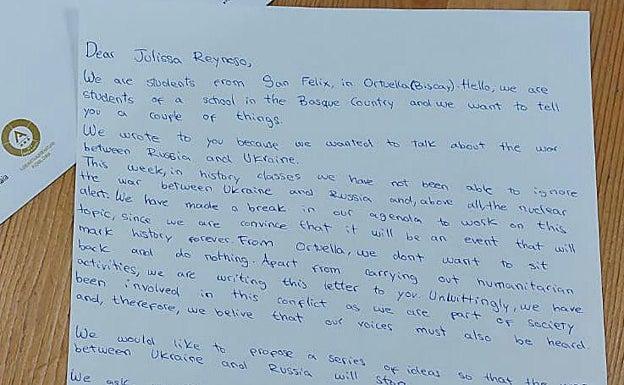 Dear Julissa Reynoso,
We are students from San Felix, in Ortuella (Biscay). Hello, we are
students of a school in the Basque Country and we want to tell
you a couple of things.
We wrote to you because we wanted to talk about the war
between Russia and Ukraine.
This week, in history classes we have not been able to ignore
the war between Ukraine and Russia and, above all, the nuclear
alert. We have made a break in our agenda to work on this
topic, since we are convince that it will be an event that will
mark history forever. From Ortuella, we dont want to sit
back and do nothing. Apart from carrying out humanitarian
activities, we are writing this letter to you. Unwittingly, we have
been involved in this conflict as we are part of society
and, therefore, we belive that our voices must also be heard.
We would like to propose a series of ideas so that the
between Ukraine and Russia will stop
We ask